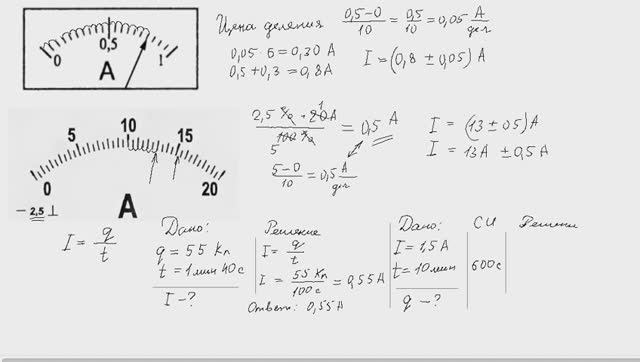 0 0,5 1
A
Цена деления (0,5-0)/10 = 0,5/10 = 0,05 А/дел
0,05·6=0,30 А
0,5+0,3=0,8А
I=(0,8 ± 0,05) А
0 5 10 15 20
- 2,5 ⊥
A
(2,5 % · 20А)/100 % = 0,5 А
1
5
(5-0)/10 = 0,5 А/дел
I = (13 ± 05) А
I = 13А ± 0,5 А
I = q/t
Дано:
q = 55 Кл
t = 1мин 40с
I - ?
Решение
I = q/t
I = 55 Кл/100с = 0,55А
Ответ: 0,55А
Дано:
I = 1,5 А
t = 10мин
q - ?
СИ
600с
Решение